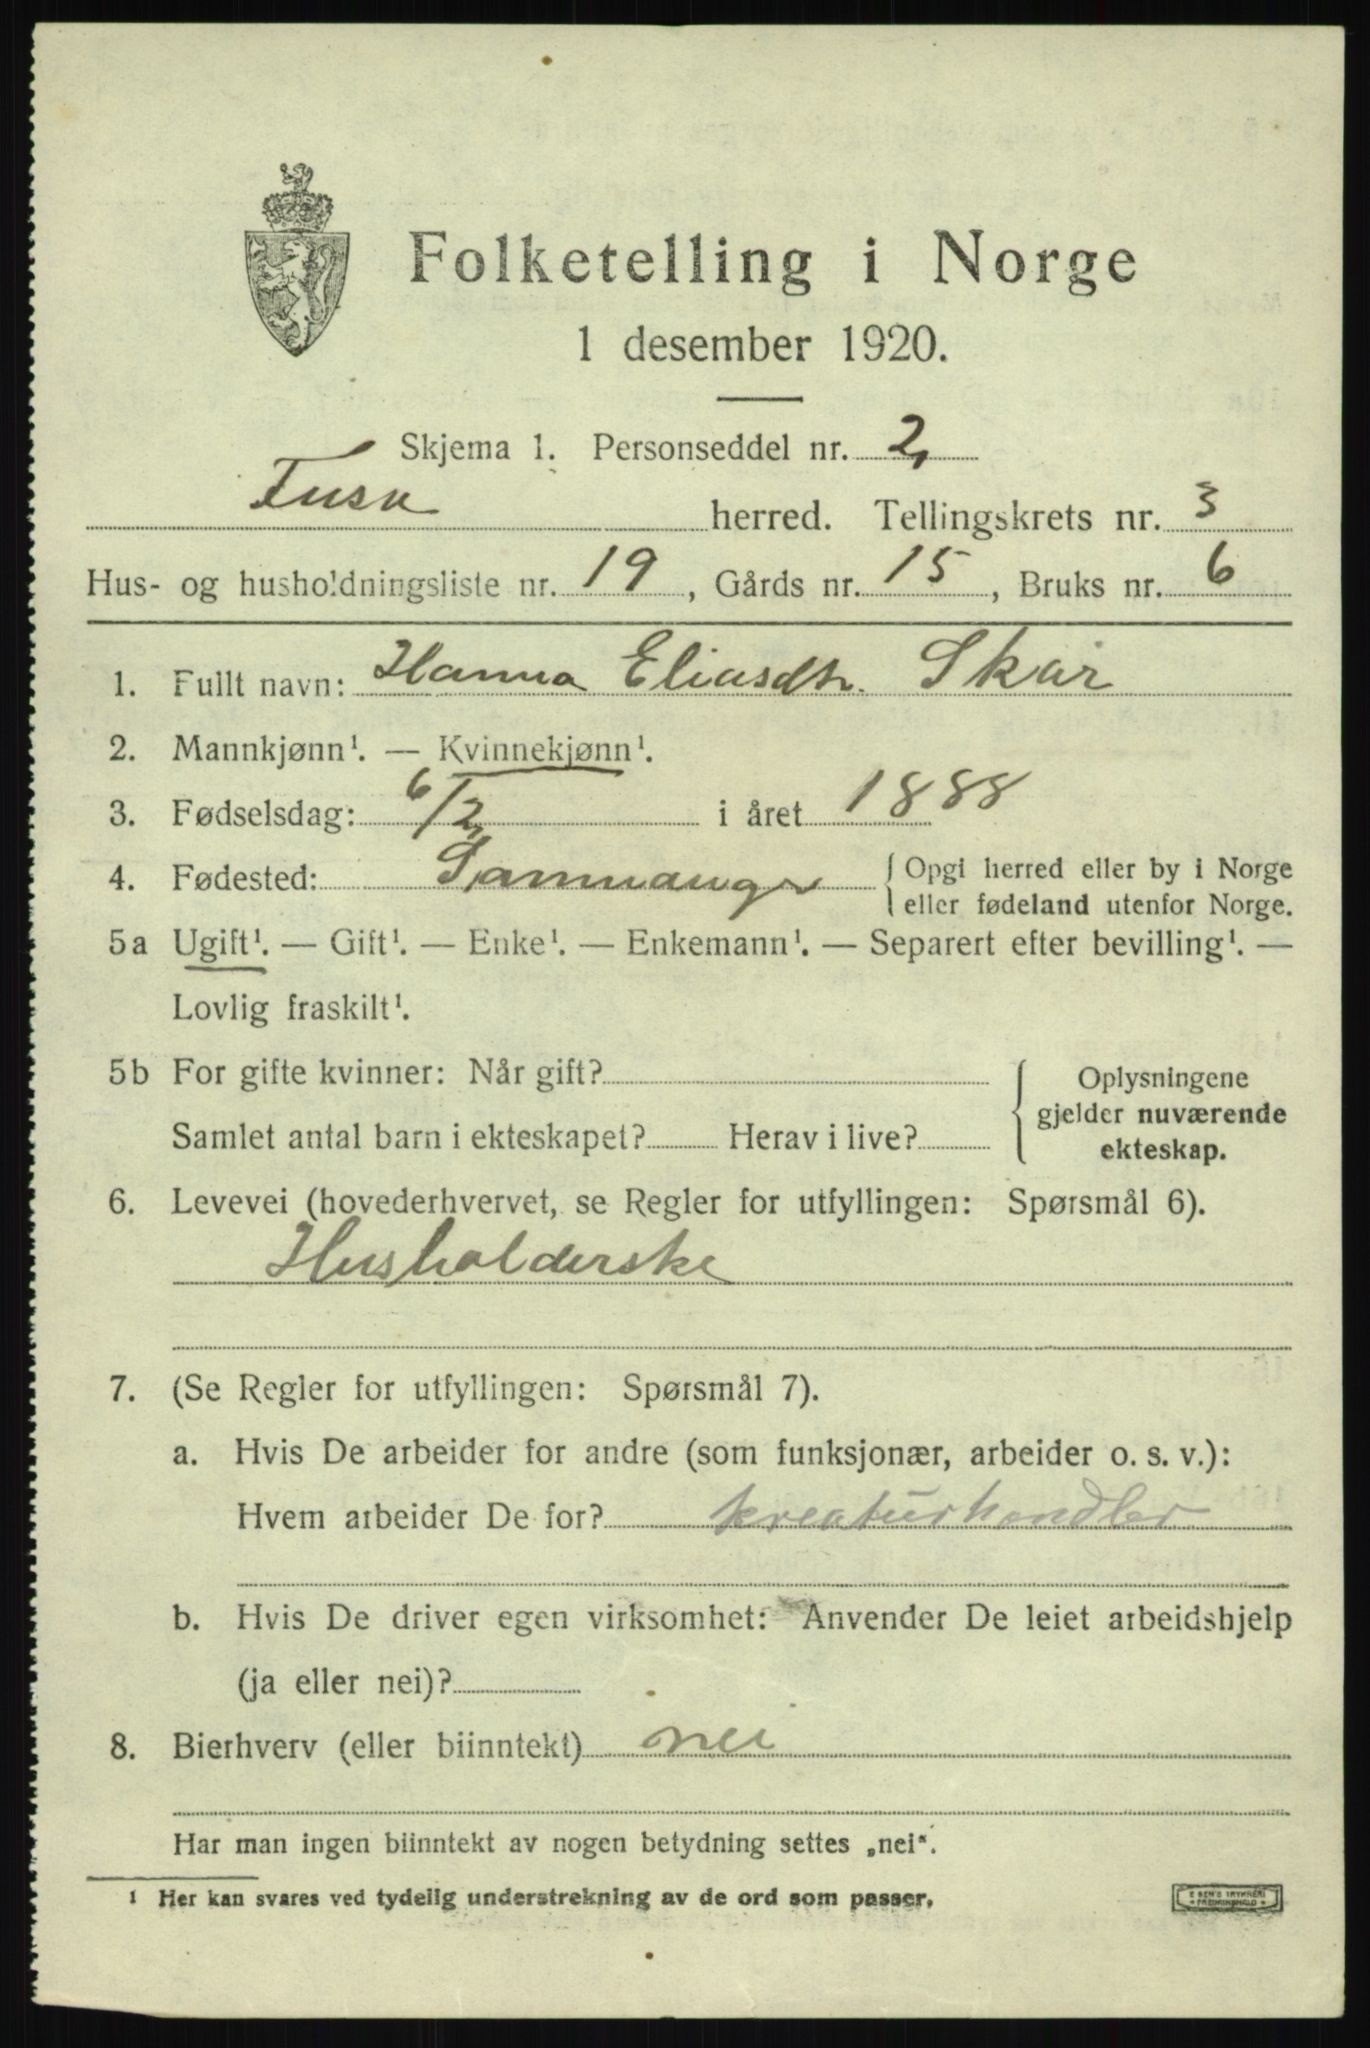 Folketelling i Norge
1 desember 1920.
Skjema 1. Personseddel nr. 2,
Fusa herred. Tellingskrets nr. 3
Hus- og husholdningsliste nr. 19, Gårds nr. 15, Bruks nr. 6
1. Fullt navn: Hanna Eliasdtr. Skår
2. Mannkjønn¹. — Kvinnekjønn¹.
3. Fødselsdag: 6/2 i året 1888
4. Fødested: Sammanger { Opgi herred eller by i Norge
eller fødeland utenfor Norge.
5a Ugift¹. — Gift¹. — Enke¹. — Enkemann¹. — Separert efter bevilling¹. —
Lovlig fraskilt¹.
5b For gifte kvinner: Når gift? { Oplysningene
gjelder nuværende
Samlet antal barn i ekteskapet? Herav i live?
ekteskap.
6. Levevei (hovederhvervet, se Regler for utfyllingen: Spørsmål 6).
Husholderske
7. (Se Regler for utfyllingen: Spørsmål 7).
a. Hvis De arbeider for andre (som funksjonær, arbeider o. s. v.):
Hvem arbeider De for? kreaturhandler
b. Hvis De driver egen virksomhet: Anvender De leiet arbeidshjelp
(ja eller nei)?
8. Bierhverv (eller biinntekt) nei
Har man ingen biinntekt av nogen betydning settes „nei“.
1 Her kan svares ved tydelig understrekning av de ord som passer.